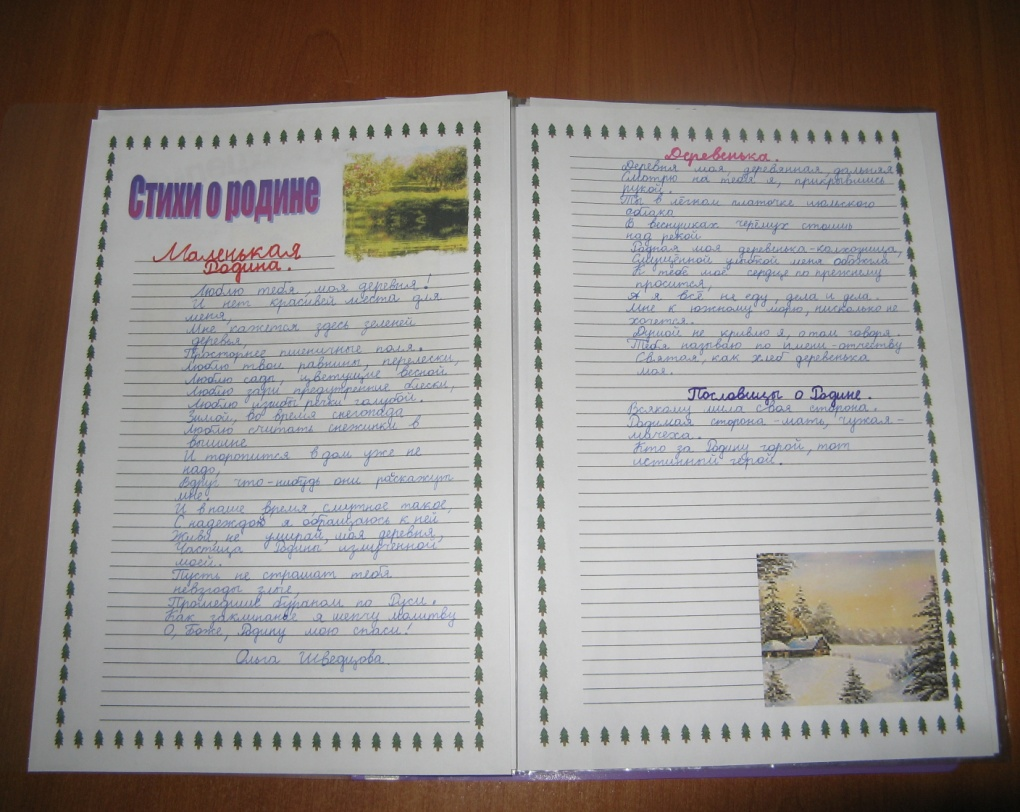 Стихи о родине
Маленькая
Родина.
Люблю тебя, моя деревня!
И нет красивей места для
меня,
Мне кажется здесь зеленей
деревья,
Просторнее пшеничные поля.
Люблю твои равнины, перелески,
Люблю сады, цветущие весной
Люблю зари предутренние блески,
Люблю изгиб речки голубой.
Зимой, во время снегопада
Люблю считать снежинки в
вышине
И торопится в дом уже не
надо,
Вдруг что-нибудь они расскажут
мне.
И в наше время, смутное такое,
С надеждою я обращаюсь к ней
Живи, не умирай, моя деревня,
Частица Родины измученной
моей.
Пусть не страшат тебя
невзгоды злые,
Прошедшие бураном по Руси.
Как заклинанье я шепчу молитву
О, Боже, Родину мою спаси!
Ольга
Деревенька.
Деревня моя, деревянная, дальняя
Смотрю на тебя я, прикрывшись
рукой.
Ты в лёгком платочке июльского
облака
В веснушках черёмух стоишь
над рекой
Родная моя деревенька-колхозница,
Смущённой улыбкой меня обожгла.
К тебе моё сердце по прежнему
просится,
А я всё не еду, дела и дела.
Мне к южному морю, нисколько не
хочется.
Душой не кривлю я, о том говоря.
Тебя называю по имени-отчеству
Святая, как хлеб деревенька
моя.
Пословицы о Родине.
Всякому мила своя сторона.
Родимая сторона - мать, чужая
мачеха.
Кто за Родину горой, тот
истинный герой.